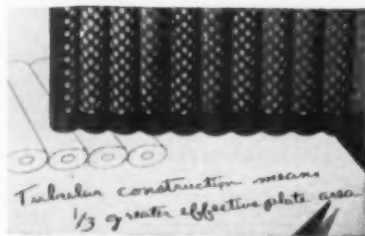 Tubular construction means
1/3 greater effective plate area